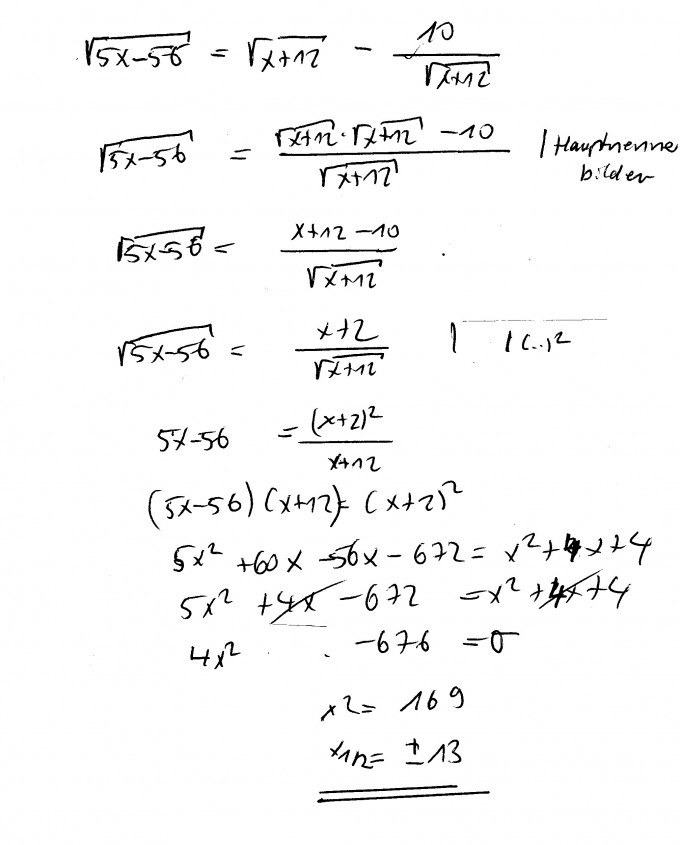 √(5x-56) = √(x+12) - 10/√(x+12)
√(5x-56) = (√(x+12) · √(x+12) - 10)/√(x+12) | Hauptnenne
bilden
√(5x-56) = (x+12-10)/√(x+12)
√(5x-56) = (x+2)/√(x+12) | |(..)²
5x-56 = (x+2)²/(x+12)
(5x-56)(x+12) = (x+2)²
5x² +60x -56x - 672 = x²+4x+4
5x² +4x -672 = x²+4x+4
4x² -676 = 0
x² = 169
x₁/₂ = ±13